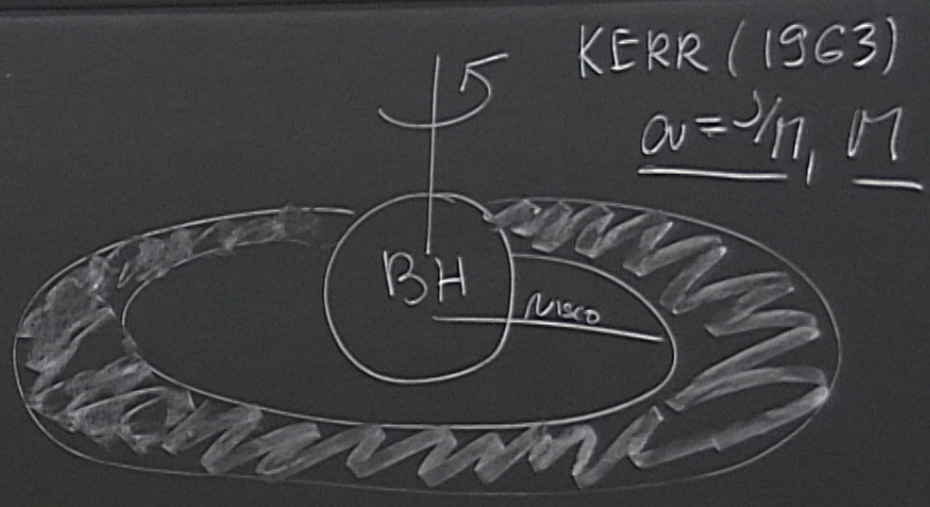 KERR (1963)
a = J/M, M
BH
r ISCO